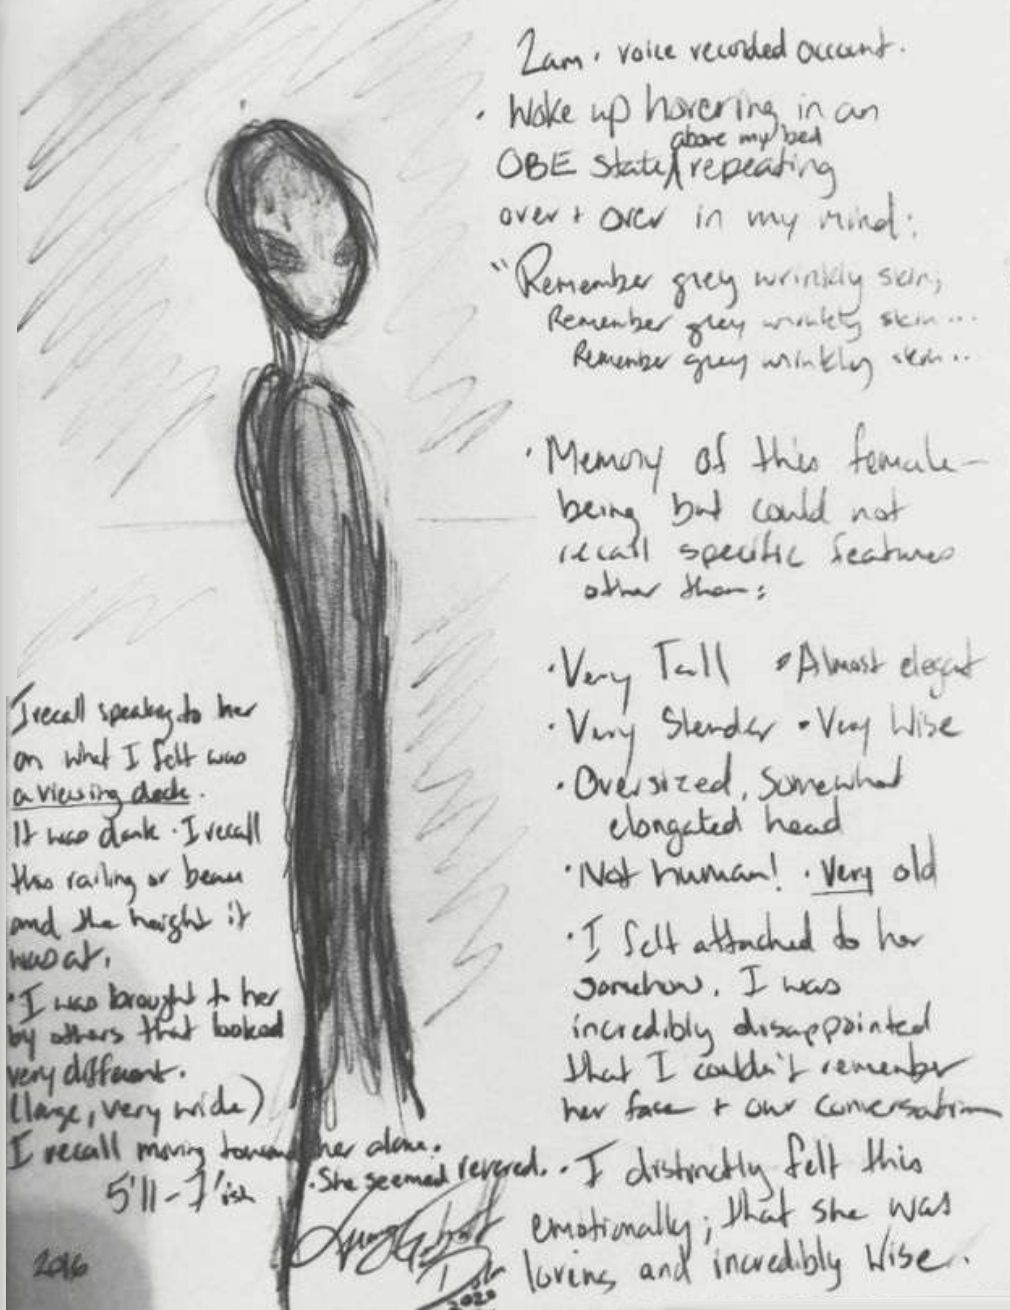 2am. voice recorded account.
· Woke up hovering in an
above my bed
OBE state repeating
over + over in my mind:
"Remember grey wrinkly skin,
Remember grey wrinkly skin...
Remember grey wrinkly skin...
· Memory of this female
being but could not
recall specific features
other than:
· Very Tall · Almost elegant
· Very Slender · Very Wise
· Oversized, Somewhat
elongated head
· Not human! · Very old
· I felt attached to her
somehow. I was
incredibly disappointed
that I couldn't remember
her face + our conversation
· I distinctly felt this
emotionally; that she was
loving and incredibly wise.
I recall speaking to her
on what I felt was
a viewing deck.
It was dark. I recall
this railing or beam
and the height it
was at.
· I was brought to her
by others that looked
very different.
(large, very wide)
I recall moving toward her alone.
· She seemed revered.
5'11 - 7'ish
2016
2020